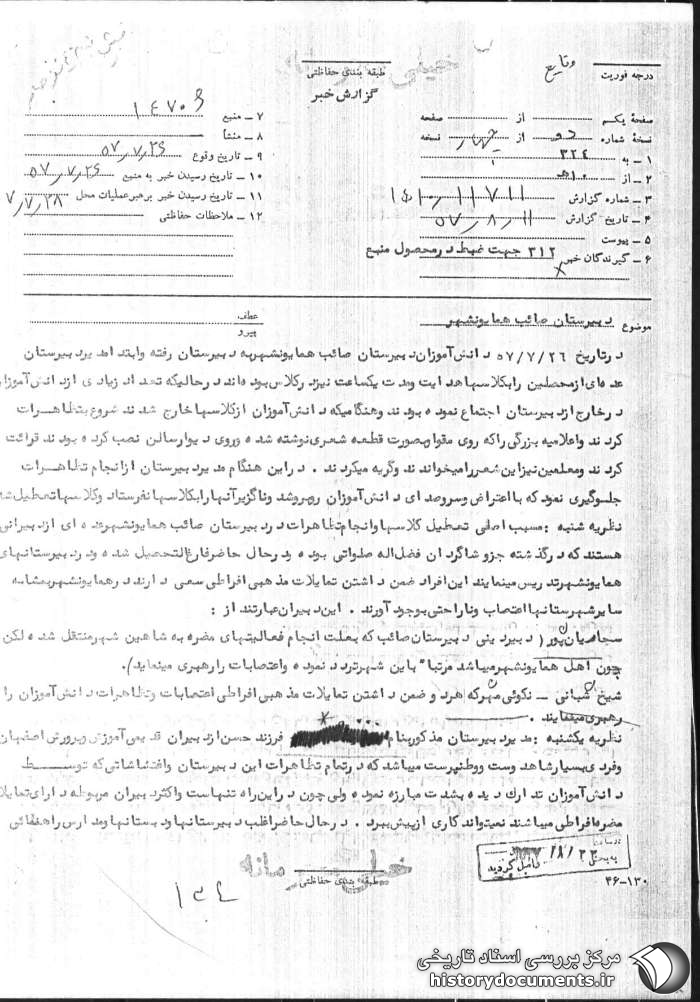 خیلی محرمانه
طبقه بندی حفاظتی
گزارش خبر
وقایع
درجه فوریت
صفحهٔ یکم از صفحه
نسخهٔ شماره دو از چهار نسخه
۱ ـ به ۳۲۴
۲ ـ از ۱۰هـ
۳ ـ شماره گزارش
۴ ـ تاریخ گزارش ۵۷٫۸٫۱۱
۵ ـ پیوست
۶ ـ گیرندگان خبر ۳۱۲ جهت ضبط در محصول منبع
۷ ـ منبع
۸ ـ منشأ
۹ ـ تاریخ وقوع ۵۷٫۷٫۲۶
۱۰ ـ تاریخ رسیدن خبر به منبع ۵۷٫۷٫۲۶
۱۱ ـ تاریخ رسیدن خبر به رهبر عملیات محل
۱۲ ـ ملاحظات حفاظتی
موضوع دبیرستان صائب همایونشهر
عطف
پیرو
در تاریخ ۵۷/۷/۲۶ دانش آموزان دبیرستان صائب همایونشهر به دبیرستان رفته و ابتدا مدیر دبیرستان
عده ای از محصلین را بکلاسها هدایت و مدت یکساعت نیز در کلاس بوده اند در حالیکه تعداد زیادی از دانش آموزان
در خارج از دبیرستان اجتماع نموده بودند و هنگامیکه دانش آموزان از کلاسها خارج شدند شروع بتظاهرات
کردند و اعلامیه بزرگی را که روی مقوا و بصورت قطعه شعری نوشته شده و روی دیوار سالن نصب کرده بودند قرائت
کردند و معلمین نیز این شعر را میخواندند و گریه میکردند . در این هنگام مدیر دبیرستان از انجام تظاهرات
جلوگیری نمود که با اعتراض و سر و صدای دانش آموزان روبرو شد و ناگزیر آنها را بکلاسها نفرستاد و کلاسها تعطیل شد
نظریه شنبه : مسبب اصلی تعطیل کلاسها و انجام تظاهرات در دبیرستان صائب همایونشهر عده ای از دبیرانی
هستند که در گذشته جزو شاگردان فضل اله صلواتی بوده و در حال حاضر فارغ التحصیل شده و در دبیرستانهای
همایونشهر تدریس مینمایند این افراد ضمن داشتن تمایلات مذهبی افراطی سعی دارند در همایونشهر بمشابه
سایر شهرستانها اعتصاب و ناراحتی بوجود آورند . این دبیران عبارتند از :
سجادیان پور ( دبیر دینی دبیرستان صائب که بعلت انجام فعالیتهای مضره به شاهین شهر منتقل شده لکن
چون اهل همایونشهر میباشد مرتباً باین شهر تردد نموده و اعتصابات را رهبری مینماید ).
شیخ شبانی ـ نکوئی مهر که هر دو ضمن داشتن تمایلات مذهبی افراطی اعتصابات و تظاهرات دانش آموزان را
رهبری مینمایند .
نظریه یکشنبه : مدیر دبیرستان مذکور بنام فرزند حسن از دبیران قدیمی آموزش و پرورش اصفهان
و فردی بسیار شاهدوست و وطنپرست میباشد که در تمام تظاهرات این دبیرستان و اغتشاشاتی که توسط
دانش آموزان تدارک دیده بشدت مبارزه نموده ولی چون در این راه تنهاست و اکثر دبیران مربوطه دارای تمایلات
مضره افراطی میباشند نمیتواند کاری از پیش ببرد . در حال حاضر اغلب دبیرستانها و دبستانها و مدارس راهنمائی
خیلی محرمانه
طبقه بندی حفاظتی
۴۶-۱۳۰
۱۳۴
مرکز بررسی اسناد تاریخی
historydocuments.ir